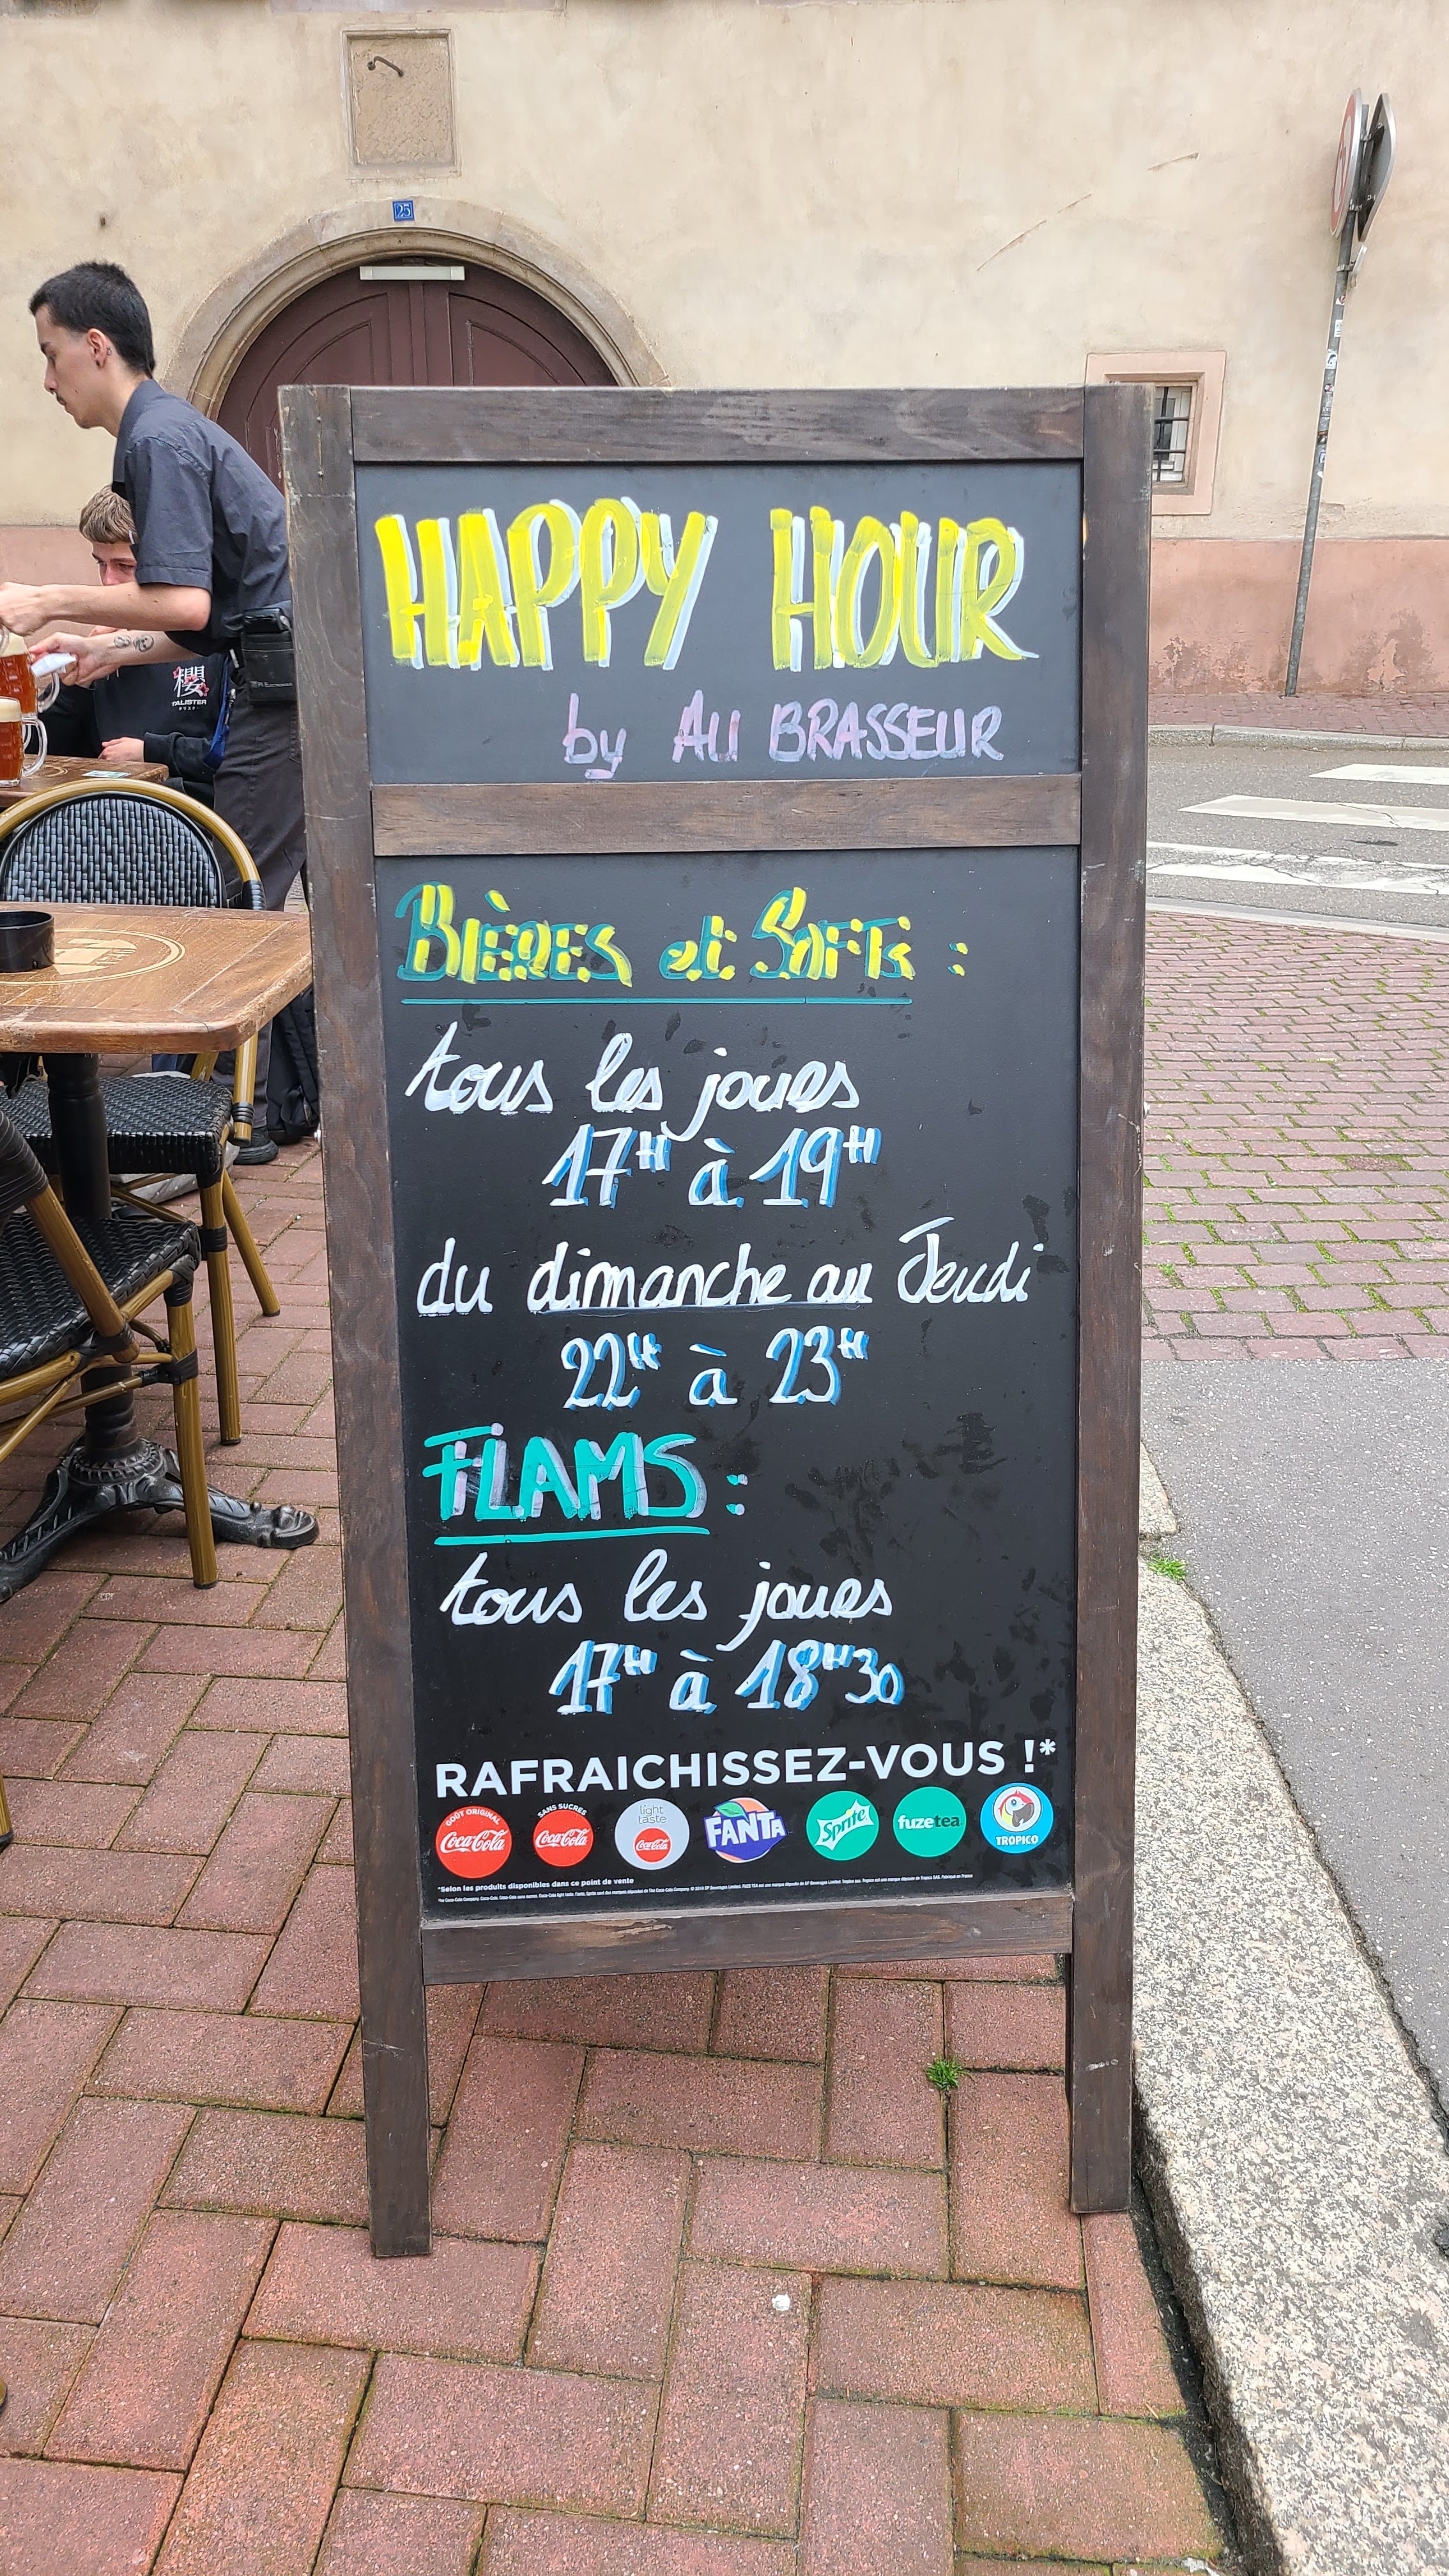 25
HAPPY HOUR
by AU BRASSEUR
BIÈRES et SOFTS :
tous les jours
17H à 19H
du dimanche au Jeudi
22H à 23H
FLAMS :
tous les jours
17H à 18H30
RAFRAICHISSEZ-VOUS !*
GOÛT ORIGINAL
Coca-Cola
SANS SUCRES
Coca-Cola
light taste
Coca-Cola
FANTA
Sprite
fuzetea
TROPICO
*Selon les produits disponibles dans ce point de vente
櫻